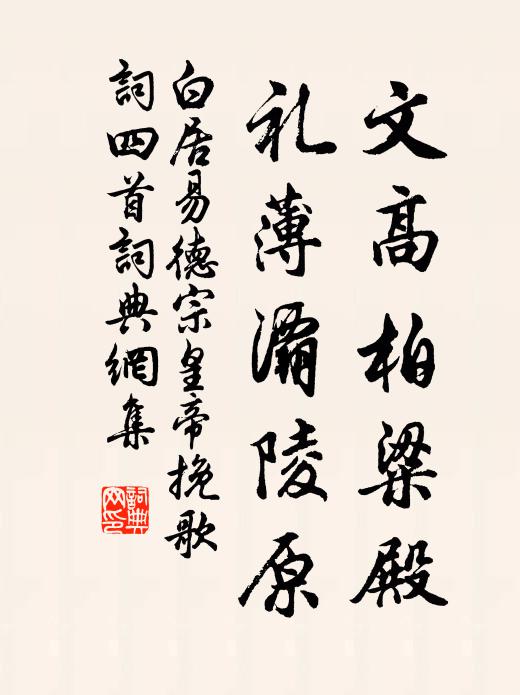 文高柏梁殿
礼薄灞陵原
白居易德宗皇帝挽歌
詞四首詞典網集
詞典
网印